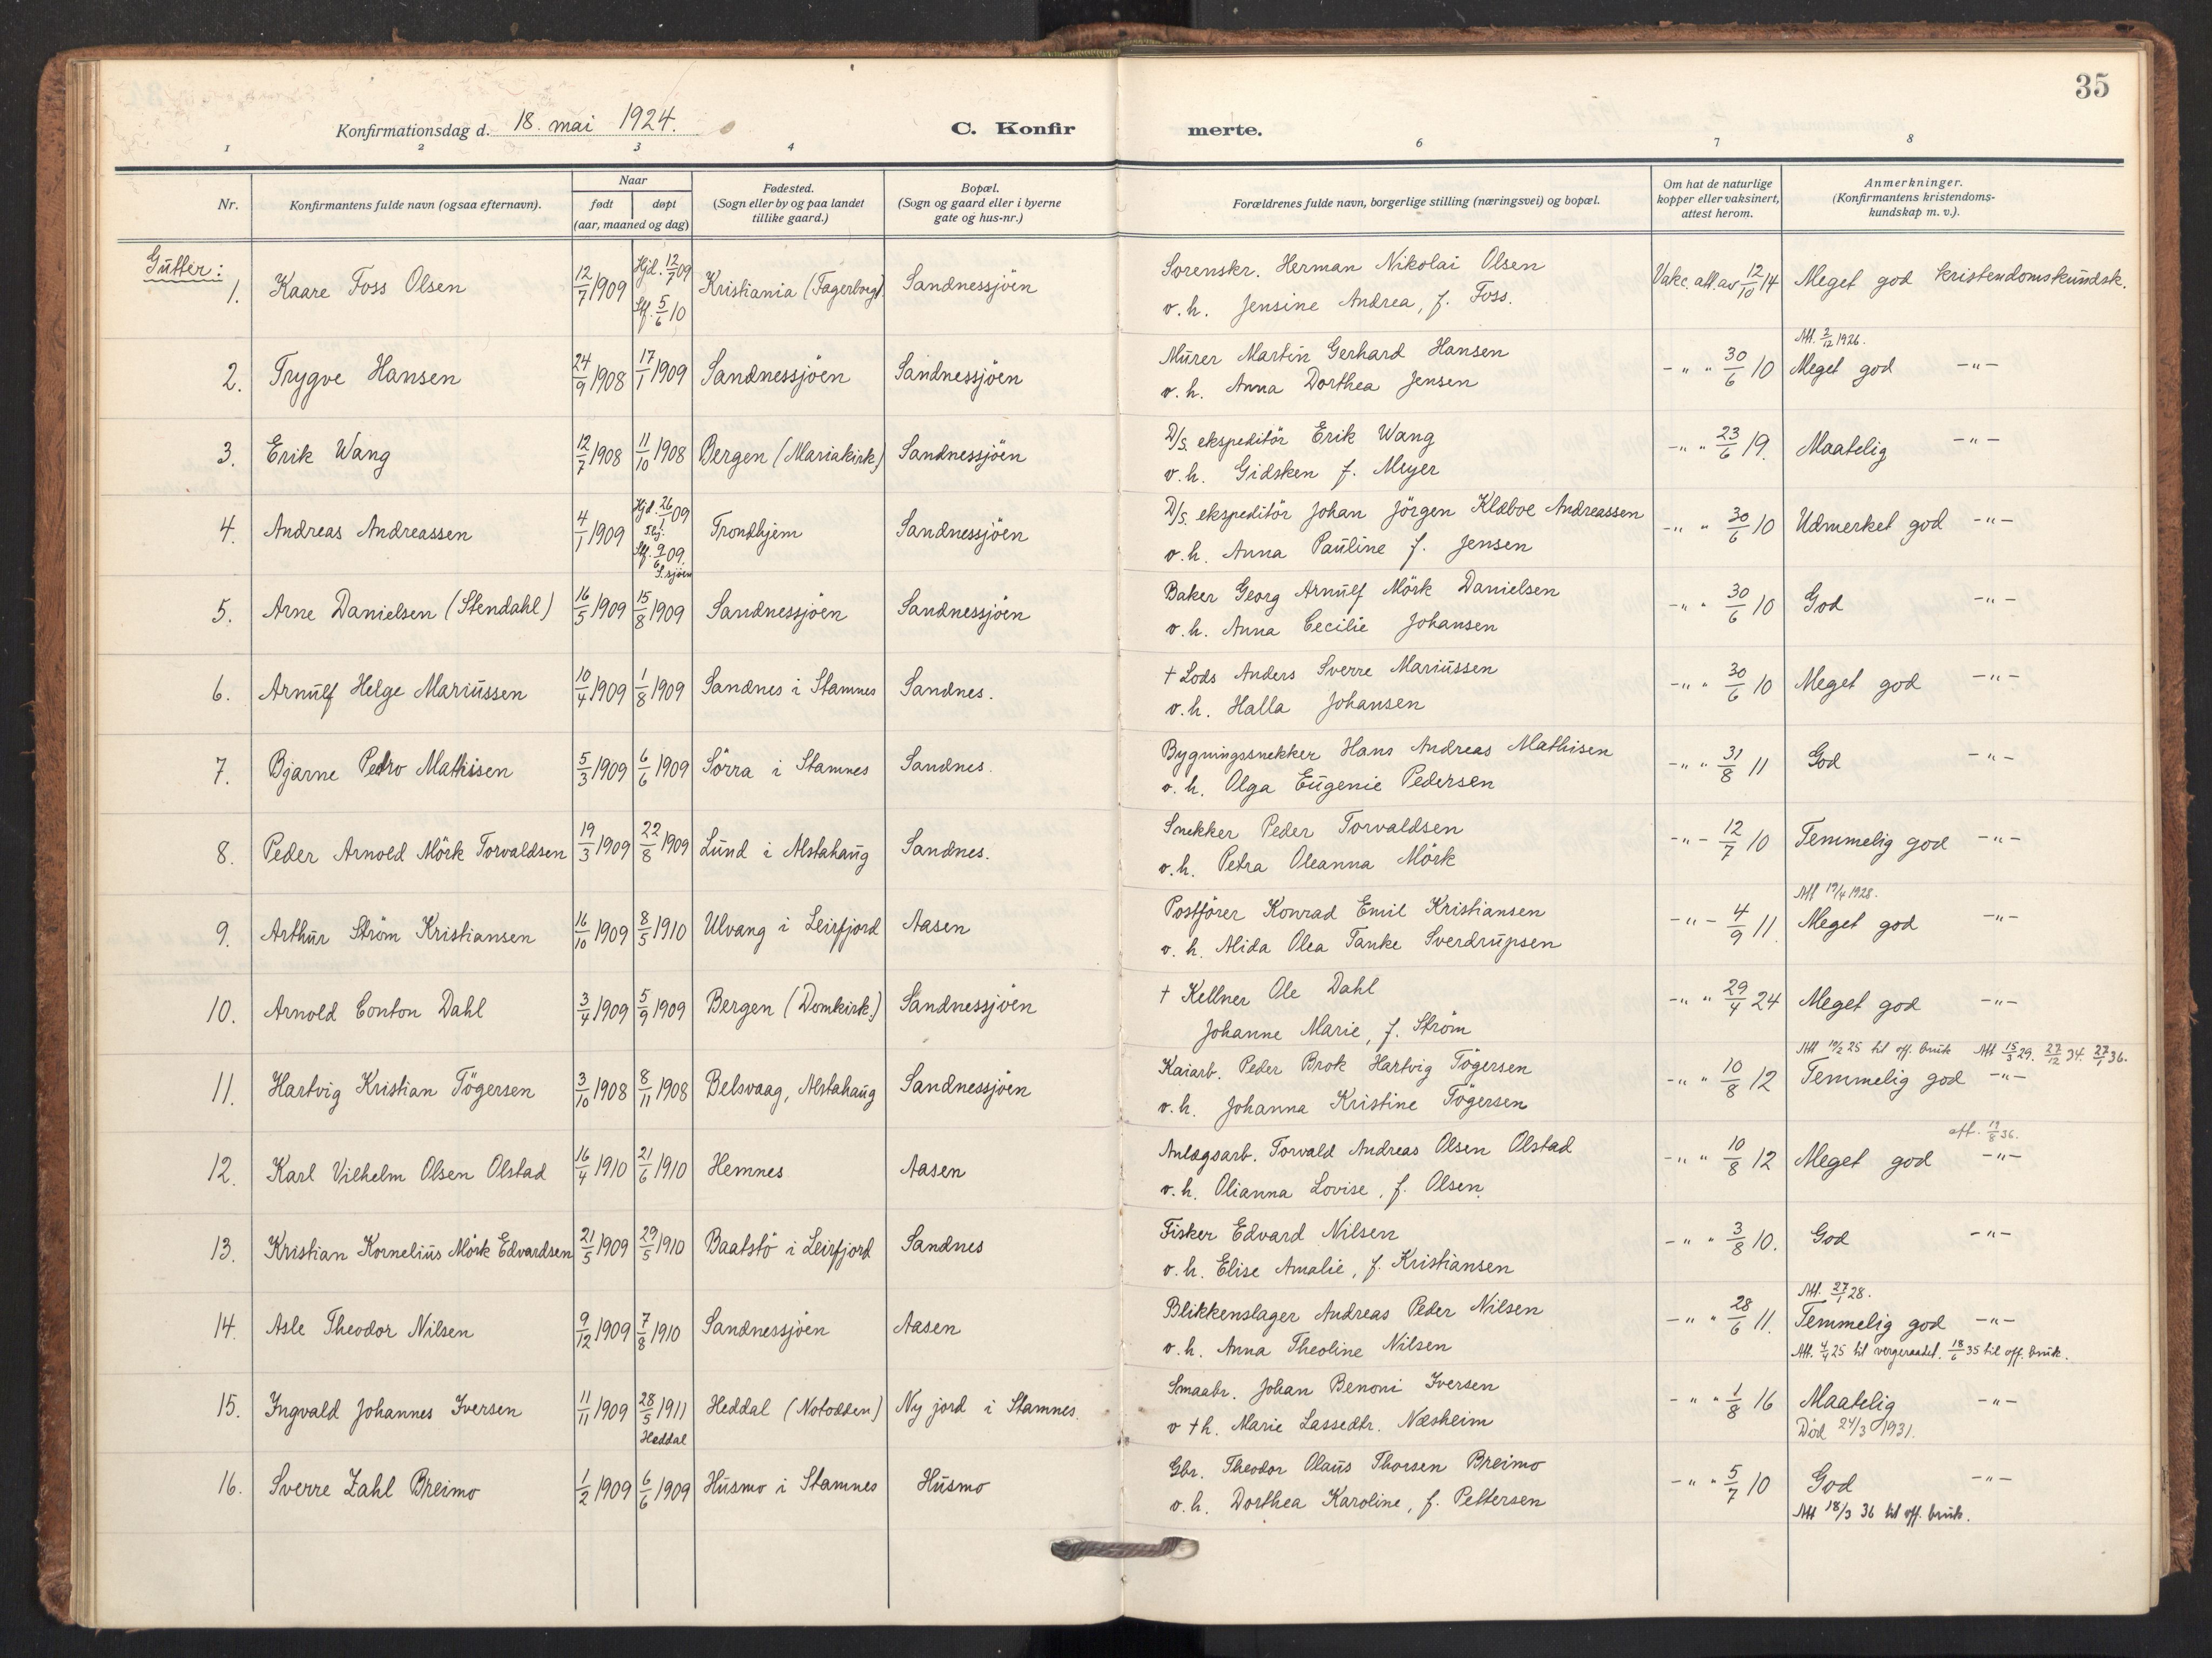 35
Konfirmationsdag d. 18. mai 1924. C. Konfir merte.
1 2 3 4 6 7 8
Nr. Konfirmantens fulde navn (ogsaa efternavn). Naar født døpt (aar, maaned og dag) Fødested. (Sogn eller by og paa landet tillike gaard.) Bopæl. (Sogn og gaard eller i byerne gate og hus-nr.) Forældrenes fulde navn, borgerlige stilling (næringsvei) og bopæl. Om hat de naturlige kopper eller vaksinert, attest herom. Anmerkninger. (Konfirmantens kristendoms-kundskap m. v.).
Gutter:
1. Kaare Foss Olsen 12/7 1909 Hjd. 12/7 09 Stf. 5/6 10 Kristiania (Fagerborg). Sandnessjöen Sorenskr. Herman Nikolai Olsen Vakc. att. av 12/10 14 Meget god kristendomskundsk.
o. h. Jensine Andrea, f. Foss.
Att. 2/12 1926.
2. Trygve Hansen 24/9 1908 17/1 1909 Sandnessjöen Sandnessjöen Murer Martin Gerhard Hansen -"- " 30/6 10 Meget god -"-
o. h. Anna Dorthea Jensen
3. Erik Wang 12/7 1908 11/10 1908 Bergen (Mariakirk.) Sandnessjöen D/S. ekspeditör Erik Wang -"- " 23/6 19. Maatelig -"-
o. h. Gidsken f. Meyer
4. Andreas Andreassen 4/1 1909 Hjd. 26/1 09 Thj. Stf. 9/6 09. S.sjöen Trondhjem Sandnessjöen D/S. ekspeditör Johan Jörgen Klæboe Andreassen -"- " 30/6 10 Udmerket god -"-
o. h. Anna Pauline f. Jensen
5. Arne Danielsen (Stendahl) 16/5 1909 15/8 1909 Sandnessjöen Sandnessjöen Baker Georg Arnulf Mörk Danielsen -"- " 30/6 10 God -"-
o. h. Anna Cecilie Johansen
6. Arnulf Helge Mariussen 10/4 1909 1/8 1909 Sandnes i Stamnes Sandnes. † Lods Anders Sverre Mariussen -"- " 30/6 10 Meget god -"-
o. h. Halla Johansen
7. Bjarne Pedro Mathisen 5/3 1909 6/6 1909 Sörra i Stamnes Sandnes. Bygningssnekker Hans Andreas Mathisen -"- " 31/8 11 God -"-
o. h. Olga Eugenie Pedersen
8. Peder Arnold Mörk Torvaldsen 19/3 1909 22/8 1909 Lund i Alstahaug Sandnes. Snekker Peder Torvaldsen -"- 12/7 10 Temmelig god -"-
o. h. Petra Oleanna Mörk
Att 19/4 1928.
9. Arthur Ström Kristiansen 16/10 1909 8/5 1910 Ulvang i Leirfjord Aasen Postförer Konrad Emil Kristiansen -"- 4/9 11. Meget god -"-
o. h. Alida Olea Tanke Sverdrupsen
10. Arnold Conton Dahl 3/4 1909 5/9 1909 Bergen (Domkirk.) Sandnessjöen † Kellner Ole Dahl -"- " 29/4 24 Meget god -"-
Johanne Marie, f. Ström
Att 19/2 25 til off. bruk Att 15/3 29. 27/12 34. 27/7 36.
11. Hartvig Kristian Tögersen 3/10 1908 8/11 1908 Belsvaag, Alstahaug Sandnessjöen Kaiarb. Peder Brok Hartvig Tögersen -"- " 10/8 12 Temmelig god -"-
o. h. Johanna Kristine Tögersen
att. 19/8 36.
12. Karl Vilhelm Olsen Olstad 16/4 1910 21/6 1910 Hemnes Aasen Anlægsarb. Torvald Andreas Olsen Olstad -"- " 10/8 12 Meget god -"-
o. h. Olianna Lovise, f. Olsen
13. Kristian Kornelius Mörk Edvardsen 21/5 1909 29/5 1910 Baatstö i Leirfjord Sandnes Fisker Edvard Nilsen -"- " 3/8 10. God -"-
o. h. Elise Amalie, f. Kristiansen
Att. 27/1 28.
14. Asle Theodor Nilsen 9/12 1909 7/8 1910 Sandnessjöen Aasen Blikkenslager Andreas Peder Nilsen -"- " 28/6 11. Temmelig god -"-
o. h. Anna Theoline Nilsen Att. 4/4 25 til vergeraadet. 18/6 35 til off. bruk.
15. Ingvald Johannes Iversen 11/11 1909 28/5 1911 Heddal Heddal (Notodden) Ny jord i Stamnes. Smaabr. Johan Benoni Iversen -"- " 1/8 16 Maatelig -"-
o † h. Marie Lassedtr. Næsheim Död 24/3 1931.
16. Sverre Zahl Breimo 1/2 1909 6/6 1909 Husmo i Stamnes Husmo Gbr. Theodor Olaus Thorsen Breimo -"- " 5/7 10 God -"-
o. h. Dorthea Karoline, f. Pettersen Att 18/3 36 til off. bruk.